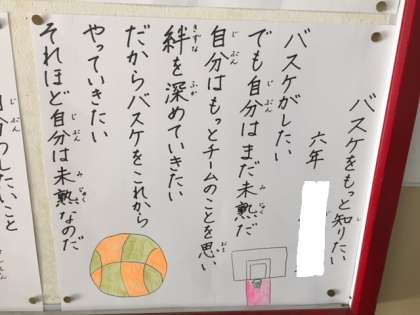 バスケをもっと知りたい
六年
バスケがしたい
でも自分はまだ未熟だ
自分はもっとチームのことを思い
絆を深めていきたい
だからバスケをこれから
やっていきたい
それほど自分は未熟なのだ